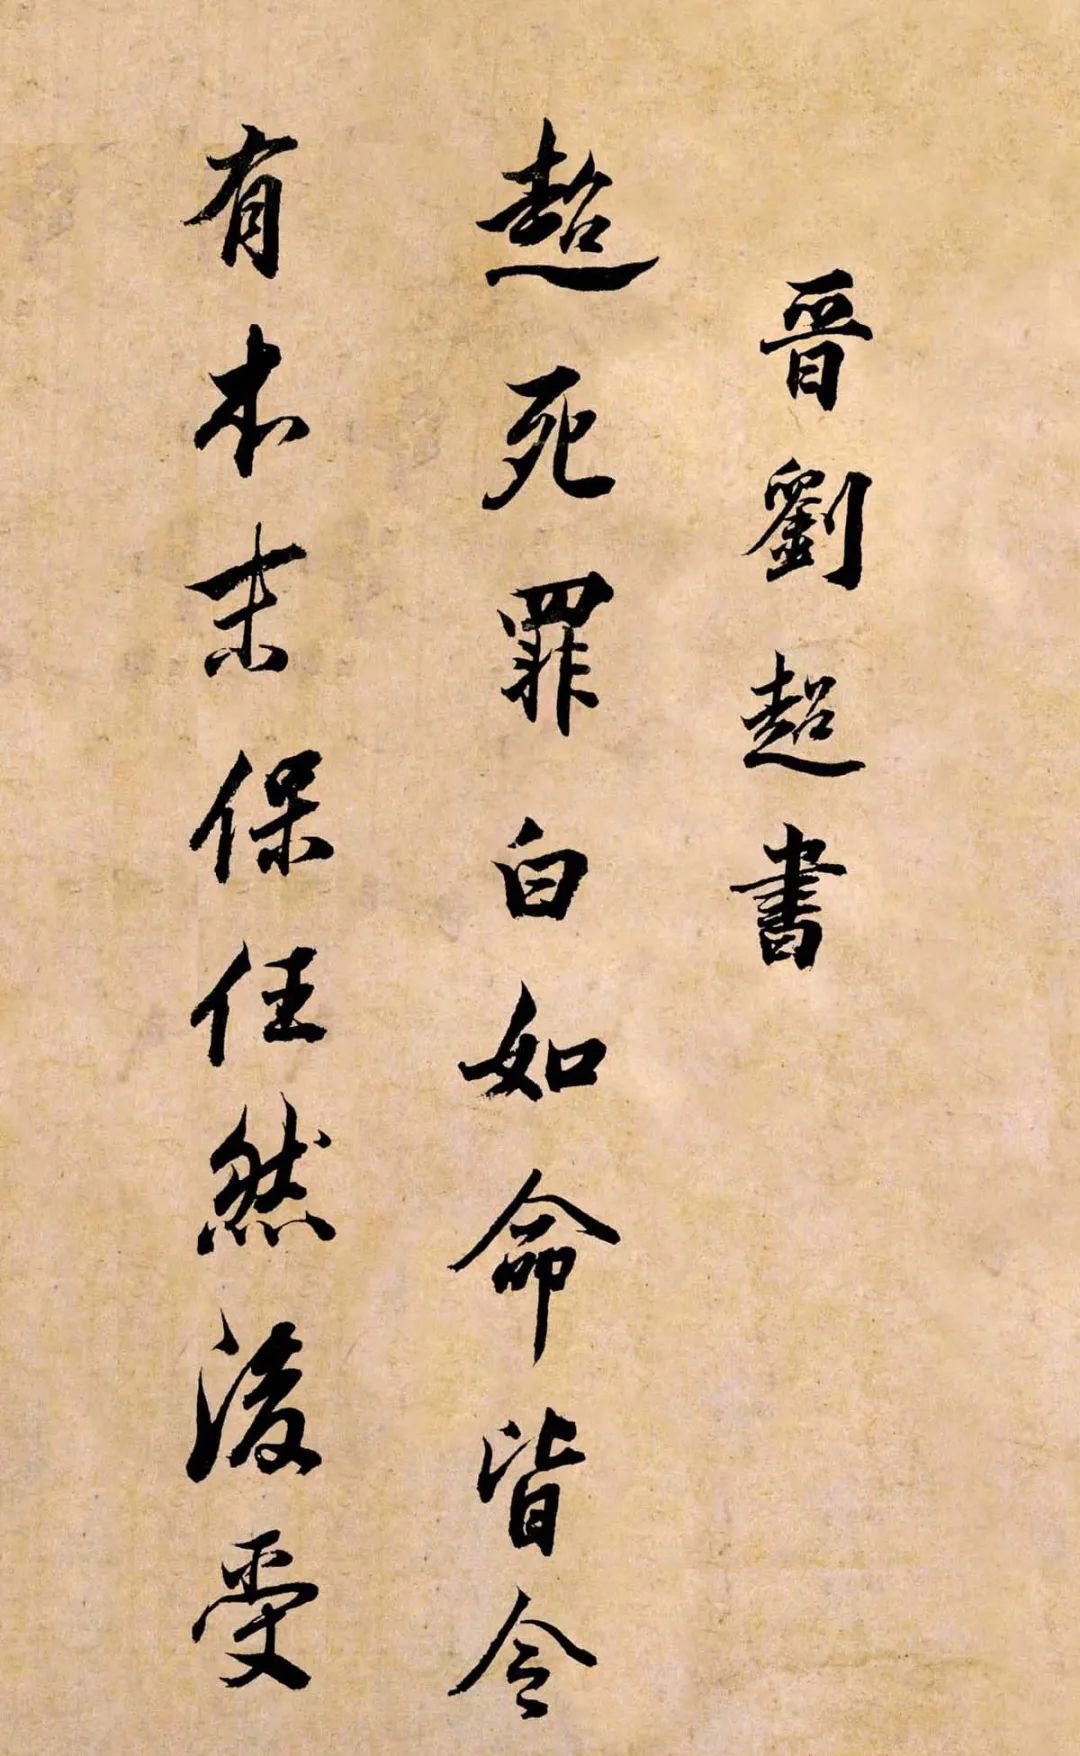 晉劉超書
超死罪白如命皆令
有本末保任然後受